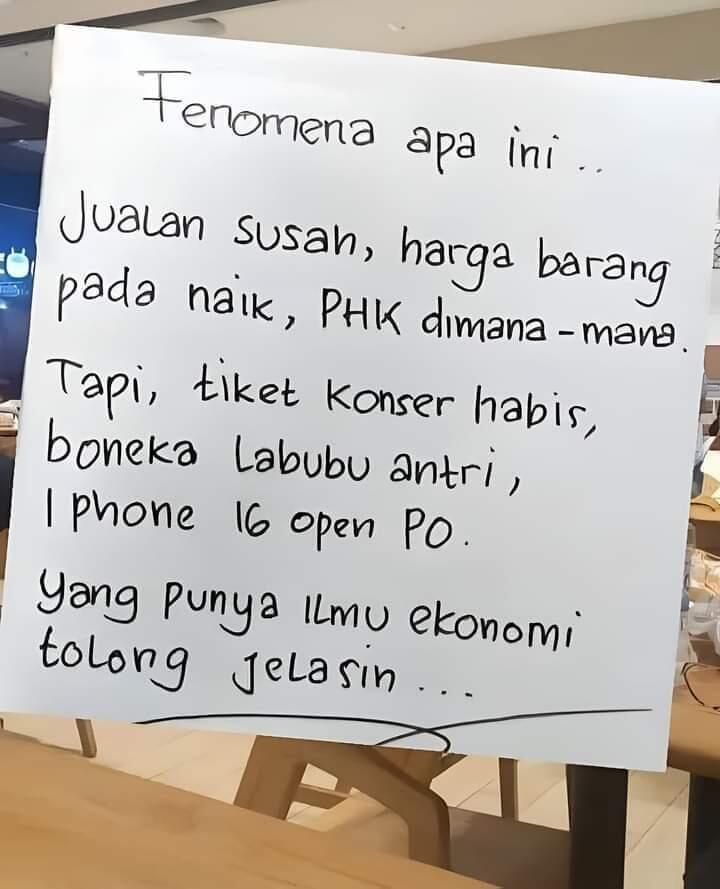 Fenomena apa ini..
Jualan susah, harga barang
pada naik, PHK dimana-mana.
Tapi, tiket konser habis,
boneka Labubu antri,
Iphone 16 open PO.
Yang punya ilmu ekonomi
tolong jelasin...